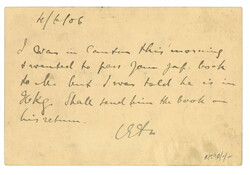 4/6/06
I was in Canton this morning
& wanted to pass your Jap. book
to Mr. but I was told he is in
Hkg. Shall send him the book on
his return.